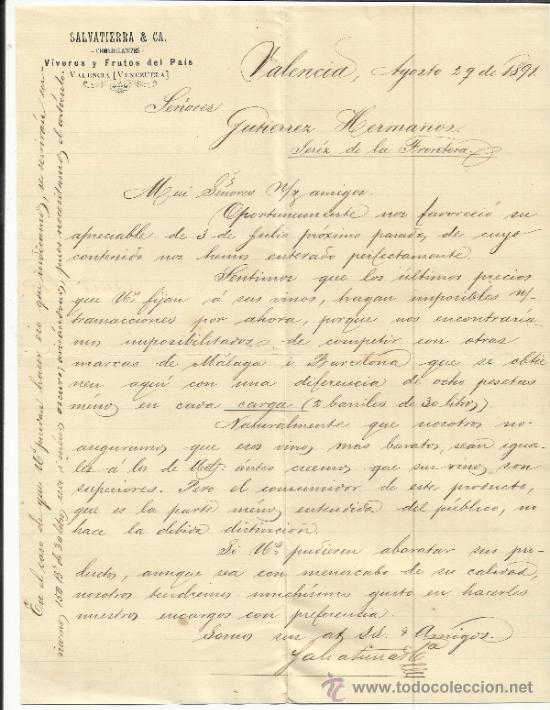 SALVATIERRA & CA.
COMERCIANTES
Víveres y Frutos del País
VALENCIA [VENEZUELA]
Valencia, Agosto 29 de 1891.
Señores
Gutierrez Hermanos.
Jeréz de la Frontera.
Mui Señores n/ y amigos.
Oportunamente nos favoreció su
apreciable de 3 de Julio próximo pasado, de cuyo
contenido nos hemos enterado perfectamente.
Sentimos que los últimos precios
que Vs. fijan á sus vinos, hagan imposibles n/
transacciones por ahora, porque nos encontraría-
mos imposibilitados de competir con otras
marcas de Málaga ó Barcelona que se obtie-
nen aquí con una diferencia de ocho pesetas
menos en cada carga (2 barriles de 30 litros)
Naturalmente que nosotros no
aseguramos que esos vinos mas baratos, sean igua-
les a los de Uds; antes creemos que sus vinos son
superiores. Pero el consumidor de este producto,
que es la parte menos entendida del público, no
hace la debida distinción.
Si Vs. pudiesen abaratar sus pro-
ductos, aunque sea con menoscabo de su calidad,
nosotros tendremos muchísimo gusto en hacerles
nuestros encargos con preferencia.
Somos sus at. S.S. & Amigos.
Salvatierra & Ca
En el caso de que Vs. puedan hacer eso que indicamos, se servirán en-
viarnos 150 Bs. de 30 litros seco i menos oscuro, avisándonos, pues necesitamos el artículo.
www.todocoleccion.net